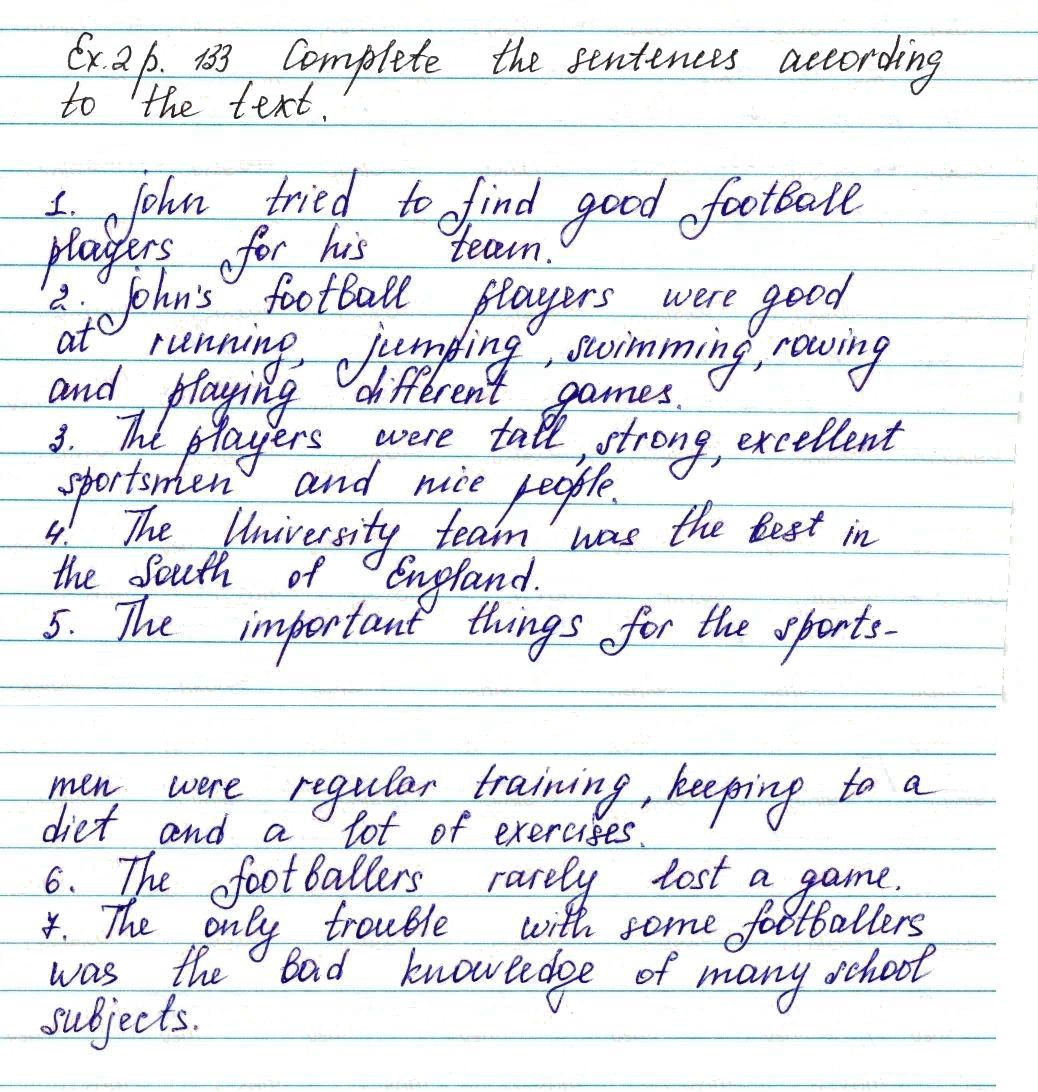 Ex. 2 p. 133 Complete the sentences according
to the text.
1. John tried to find good football
players for his team.
2. John's football players were good
at running, jumping, swimming, rowing
and playing different games.
3. The players were tall, strong, excellent
sportsmen and nice people.
4. The University team was the best in
the South of England.
5. The important things for the sports-
men were regular training, keeping to a
diet and a lot of exercises.
6. The footballers rarely lost a game.
7. The only trouble with some footballers
was the bad knowledge of many school
subjects.